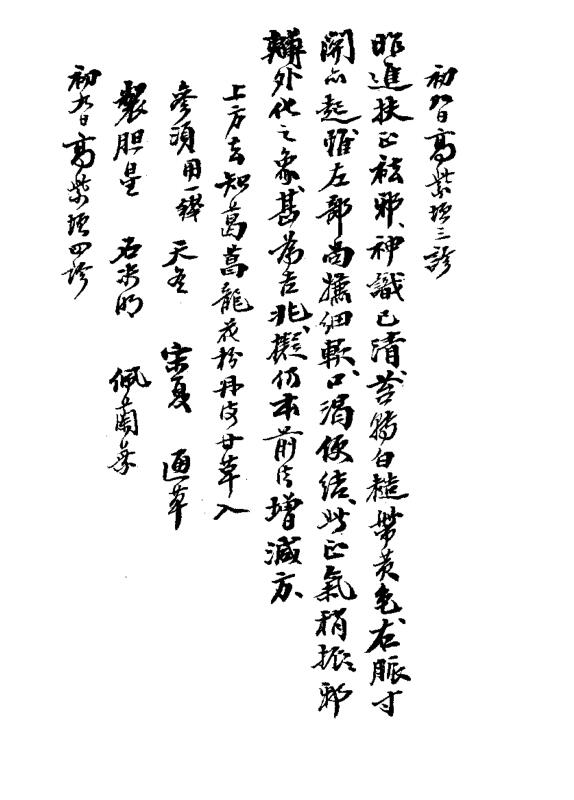 初八日高紫垣三診
昨進扶正祛邪、神識已清、苔轉白糙帶黃色、右脈寸
關亦起、惟左部尚蕪細軟、口渴便結、此正氣稍振、邪
轉外化之象、甚為吉兆、擬仍本前法增減方、
上方去知葛菖龍花粉丹皮甘草入
參須用一錢 天冬 宋夏 通草
製胆星 石決明 佩蘭葉
初九日高紫垣四診